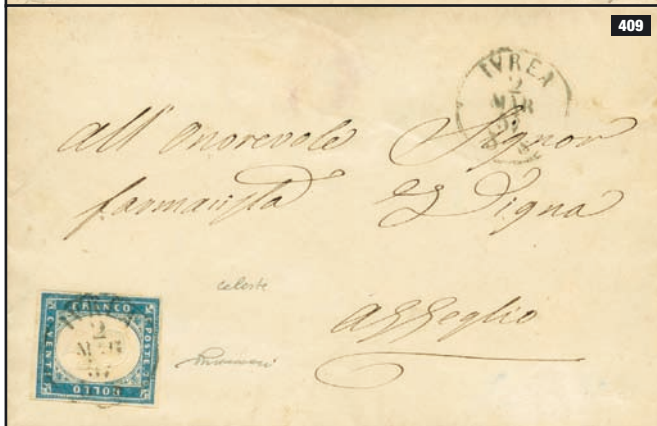 409
IVREA
2
MAR
57
all' Onorevole Signor
farmacista Digna
celeste
azeglio
FRANCO
C. POSTE 20
BOLLO
CENT.
2
MAR
57